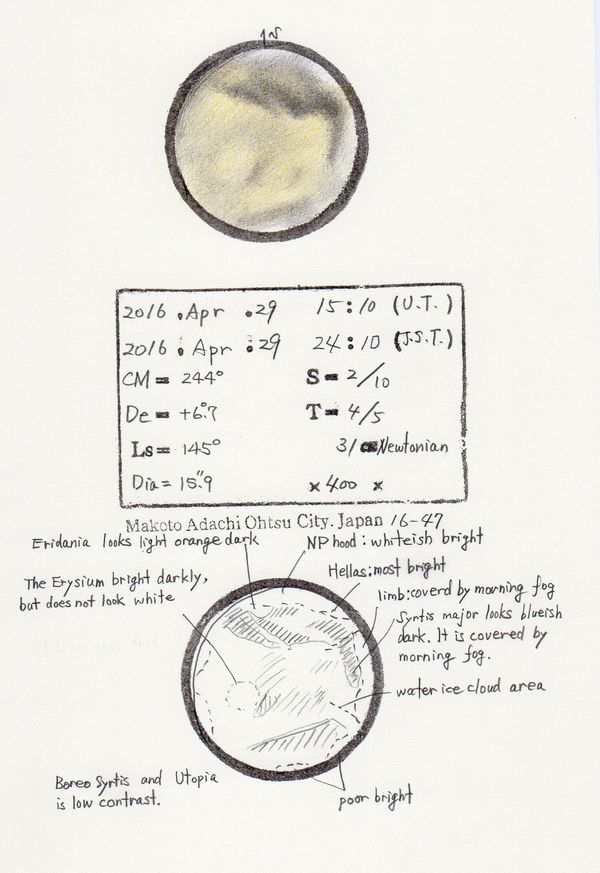 2016 . Apr . 29 15:10 (U.T.)
2016 : Apr : 29 24:10 (J.S.T.)
CM = 244° S = 2/10
De = +6°.7 T = 4/5
Ls = 145° 31 Newtonian
Dia = 15".9 × 400 ×
Makoto Adachi Ohtsu City. Japan 16-47
Eridania looks light orange dark
NP hood : whiteish bright
Hellas : most bright
The Erysium bright darkly,
but does not look white
limb : coverd by morning fog
Syrtis major looks blueish
dark. It is covered by
morning fog.
water ice cloud area
Boreo Syrtis and Utopia
is low contrast.
poor bright